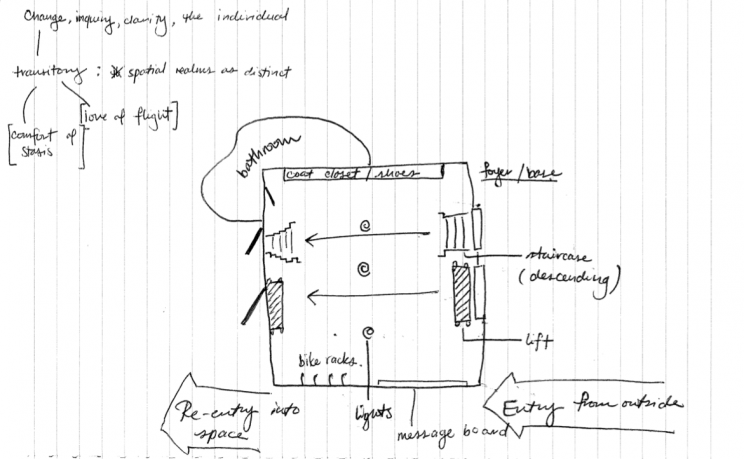 Change, inquiry, clarity, the individual
transitory : spatial realms as distinct
[love of flight]
[comfort of
stasis]
bathroom
coat closet / shoes
foyer / base
staircase
(descending)
lift
bike racks.
Re-entry into
space
lights
message board
Entry from outside